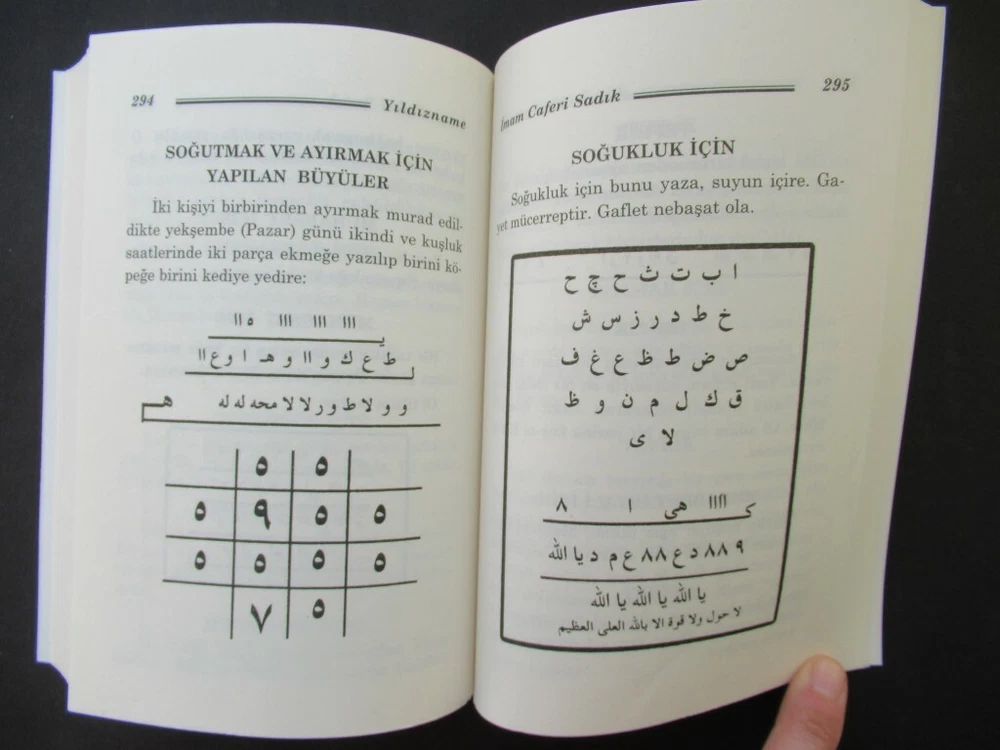 294 Yıldızname
SOĞUTMAK VE AYIRMAK İÇİN
YAPILAN BÜYÜLER
İki kişiyi birbirinden ayırmak murad edil-
dikte yekşembe (Pazar) günü ikindi ve kuşluk
saatlerinde iki parça ekmeğe yazılıp birini kö-
peğe birini kediye yedire:
ااا ااا ااا ٥ اا
ط ع ك و اا و هـ ا و ع اا
و و لا ط و ر لا لا محه له له هـ
٥ ٥
٥ ٩ ٥ ٥
٥ ٥ ٥ ٥
٧ ٥
İmam Caferi Sadık 295
SOĞUKLUK İÇİN
Soğukluk için bunu yaza, suyun içire. Ga-
yet mücerreptir. Gaflet nebaşat ola.
ا ب ت ث ح چ ح
خ ط د ر ز س ش
ص ض ط ظ ع غ ف
ق ك ل م ن و ظ
لا ى
اااا هى ا ٨
٩ ٨٨ د ع ٨٨ ع م د يا الله
يا الله يا الله يا الله
لا حول ولا قوة الا بالله العلى العظيم